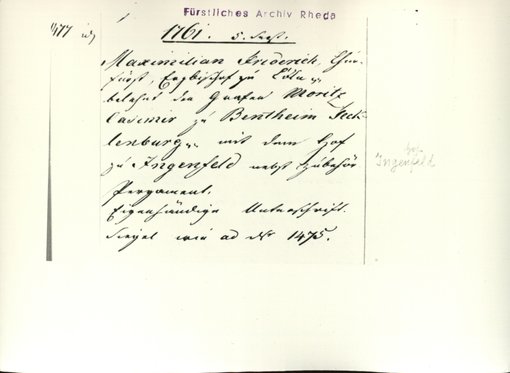 Fürstliches Archiv Rheda
1761. 5. Sept.
Maximilian Friderich, Chur-
fürst, Erzbischof zu Cöln
belehnt den Grafen Moritz
Casimir zu Bentheim Teck-
lenburg mit dem Hof
zu Ingenfeld nebst Zubehör
Pergament.
Eigenhändige Unterschrift.
Siegel wie ad Nr 1475.
Ingenfeld